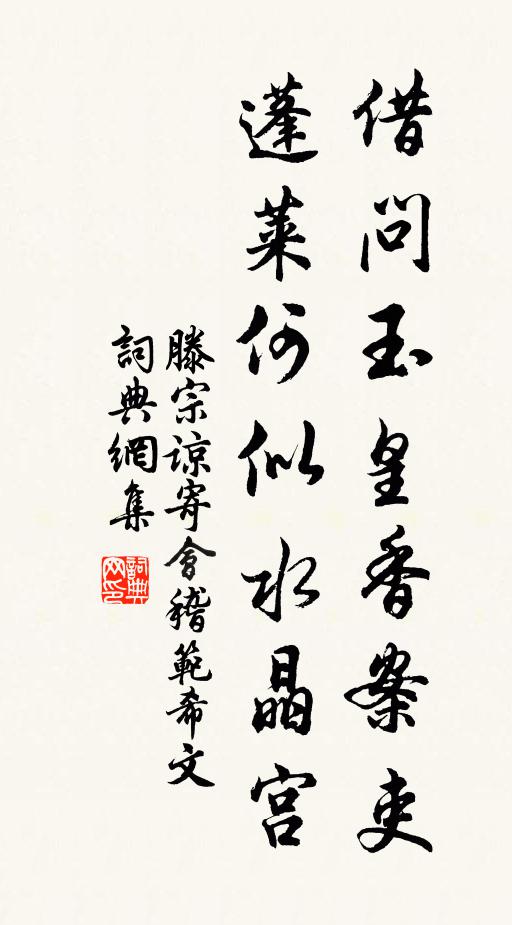 借問玉皇香案吏
蓬萊何似水晶宮
滕宗諒寄會稽範希文
詞典網集
詞典網印